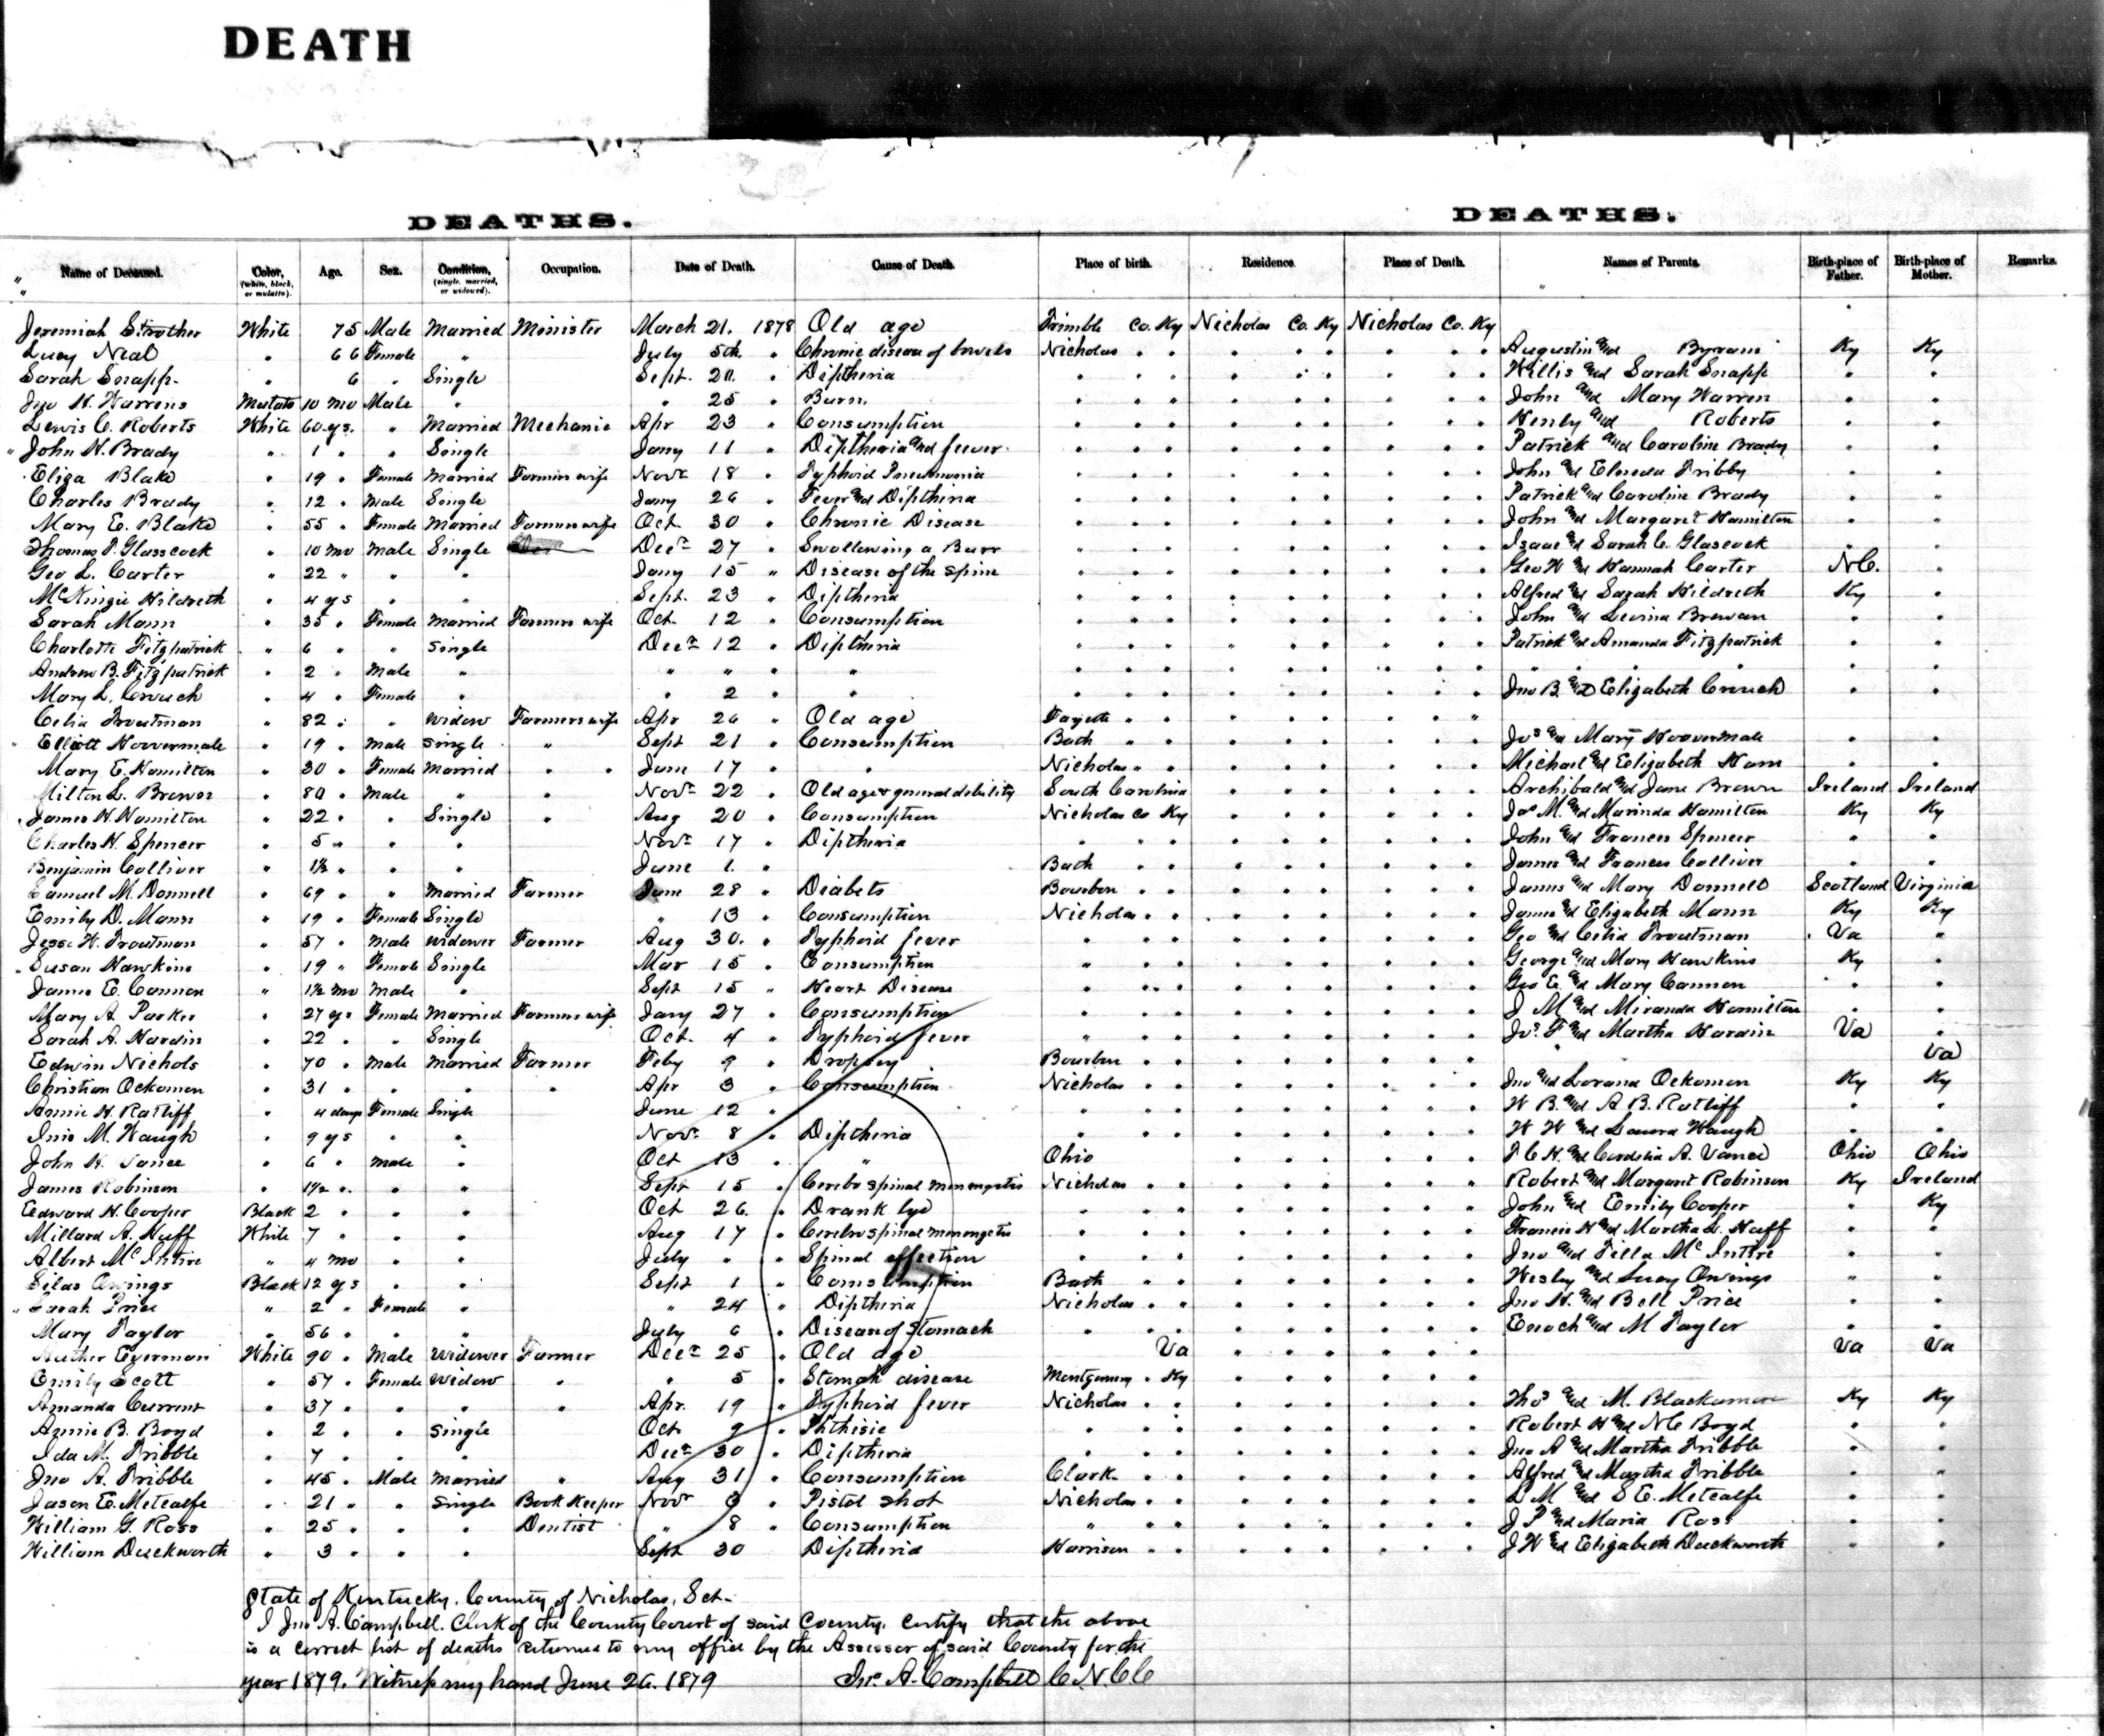 DEATH
DEATHS. DEATHS.
Name of Deceased. Color, (white, black, or mulatto). Age. Sex. Condition, (single, married, or widowed). Occupation. Date of Death. Cause of Death. Place of birth. Residence. Place of Death. Names of Parents. Birth-place of Father. Birth-place of Mother. Remarks.
Jeremiah Strother White 75 Male Married Minister March 21. 1878 Old age Trimble Co. Ky Nicholas Co. Ky Nicholas Co. Ky
Lucy Neal " 66 Female " July 5th. " Chronic disease of bowels Nicholas " " " " " " " " Augustin and Byram Ky Ky
Sarah Snapp. " 6 " Single Sept. 20. " Diptheria " " " " " " " " " Willis and Sarah Snapp " "
Jno H. Warrens Mulato 10 mo Male " " 25 " Burn. " " " " " " " " " John and Mary Warren " "
Lewis C. Roberts White 60 ys. " Married Mechanic Apr 23 " Consumption " " " " " " " " " Henly and Roberts " "
John H. Brady " 1 " " Single Jany 11 " Diptheria and fever " " " " " " " " " Patrick and Caroline Brady " "
Eliza Blake " 19 " Female Married Farmers wife Novr 18 " Typhoid Pneumonia " " " " " " " " " John and Pribby " "
Charles Brady " 12 " Male Single Jany 26 " Fever and Dipthina " " " " " " " " " Patrick and Caroline Brady " "
Mary E. Blake " 55 " Female Married Farmers wife Oct. 30 " Chronic Disease " " " " " " " " " John and Margaret Hamilton " "
Thomas P. Glasscock " 10 mo Male Single Decr 27 " Swallowing a Burr " " " " " " " " " Isaac and Sarah C. Glascock " "
Geo L. Carter " 22 " " " Jany 15 " Disease of the Spine " " " " " " " " " Geo W and Hannah Carter N.C. "
McKingie Hildreth " 4 ys " " Sept. 23 " Diptheria " " " " " " " " " Alfred and Sarah Hildreth Ky "
Sarah Mann " 35 " Female Married Farmers wife Oct. 12 " Consumption " " " " " " " " " John and Levina Brewan " "
Charlotte Fitzpatrick " 6 " " Single Decr 12 " Diptheria " " " " " " " " " Patrick and Amanda Fitzpatrick " "
Andrew B. Fitzpatrick " 2 " Male " " " " " " " " " " " " " " " " " " " "
Mary L. Crouch " 4 " Female " " 2 " " " " " " " " " " " Jno B. and Elizabeth Crouch " "
Celia Troutman " 82 " " Widow Farmers wife Apr 26 " Old age Fayette " " " " " " " "
Elliott Hoovermale " 19 " Male Single " Sept 21 " Consumption Bath " " " " " " " " Jos and Mary Hoovermale " "
Mary E. Hamilton " 30 " Female Married " " June 17 " " Nicholas " " " " " " " " Michael and Elizabeth Ham " "
Milton L. Brewer " 80 " Male " " Novr 22 " Old age & general debility South Carolina " " " " " " Archibald and Jane Brown Ireland Ireland
James H. Hamilton " 22 " " Single " Aug 20 " Consumption Nicholas Co Ky " " " " " " Jas M. and Marinda Hamilton Ky Ky
Charles H. Spencer " 5 " " " Novr 17 " Diptheria " " " " " " " " " John and Frances Spencer " "
Benjamin Colliver " 1½ " " " June 1. " Bath " " " " " " " " James and Frances Colliver " "
Samuel M. Donnell " 69 " " Married Farmer June 28 " Diabets Bourbon " " " " " " " " James and Mary Donnell Scotland Virginia
Emily D. Mann " 19 " Female Single " 13 " Consumption Nicholas " " " " " " " " James and Elizabeth Mann Ky Ky
Jesse H. Troutman " 57 " Male Widower Farmer Aug 30. " Typhoid fever " " " " " " " " " Geo and Celia Troutman Va "
Susan Hawkins " 19 " Female Single Mar 15 " Consumption " " " " " " " " " George and Mary Hawkins Ky "
James E. Cannon " 1½ mo Male " Sept 15 " Heart Disease " " " " " " " " " Geo E. and Mary Cannon " "
Mary A Parker " 27 ys Female Married Farmers wife Jany 27 " Consumption " " " " " " " " " J M and Miranda Hamilton " "
Sarah A. Hardin " 22 " " Single Oct. 4 " Typhoid fever " " " " " " " " " Jos. F and Martha Hardin Va "
Edwin Nichols " 70 " Male Married Farmer Feby 9 " Dropsy Bourbon " " " " " " " " " Va
Christian Ockomon " 31 " " " " Apr 3 " Consumption Nicholas " " " " " " " " Jno and Lorana Ockomon Ky Ky
Annie H. Ratliff " 4 days Female Single June 12 " " " " " " " " " " W B. and A B. Ratliff " "
M. Waugh " 9 ys " " Novr 8 " Diptheria " " " " " " " " " W W and Laura Waugh " "
John H. Vance " 6 " Male " Oct 13 " " Ohio " " " " " " " C H. and Cordelia A. Vance Ohio Ohio
James Robinson " 1½ " " " Sept 15 " Cerebro spinal menengetis Nicholas " " " " " " " " Robert and Margaret Robinson Ky Ireland
Edward H. Cooper Black 2 " " " Oct 26. " Drank lye " " " " " " " " " John and Emily Cooper " Ky
Millard A. Huff White 7 " " " Aug 17 " Cerebro spinal menengetis " " " " " " " " " Francis H and Martha L. Huff " "
Albert McIntire " 4 mo " " July " " Spinal affection " " " " " " " " " Jno and Tilla McIntire " "
Silas Owings Black 12 ys " " Sept 1 " Comsumption Bath " " " " " " " " Wesley and Lucy Owings " "
Sarah Price " 2 " Female " " 24 " Diptheria Nicholas " " " " " " " " Jno H. and Bell Price " "
Mary Taylor " 56 " " " July 6 " Disease of Stomach " " " " " " " " " Enoch and M Taylor " "
Egerman White 90 " Male Widower Farmer Decr 25 " Old age Va " " " " " " Va Va
Emily Scott " 57 " Female Widow " " 5 " Stomah disease Montgomery " Ky " " " " " "
Amanda Current " 37 " " " " Apr. 19 " Typhoid fever Nicholas " " " " " " " " Thos and M. Blackamon Ky Ky
Annie B. Boyd " 2 " " Single Oct. 9 " Phthisic " " " " " " " " " Robert H and N C Boyd " "
Ida M. Pribble " 7 " " " Decr 30 " Diptheria " " " " " " " " " Jno A and Martha Pribble " "
Jno A. Pribble " 45 " Male Married " Aug 31 " Consumption Clark " " " " " " " " Alfred and Martha Pribble " "
Jason E. Metcalfe " 21 " " Single Book Keeper Novr 9 " Pistol shot Nicholas " " " " " " " " L M and S E. Metcalfe " "
William G. Ross " 25 " " " Dentist " 8 " Consumption " " " " " " " " " J P and Maria Ross " "
William Duckworth " 3 " " " Sept 30 Diptheria Harrison " " " " " " " " J W and Elizabeth Duckworth " "
State of Kentucky. County of Nicholas, Sct.
I Jno A. Campbell. Clerk of the County Court of said County, certify that the above
is a correct list of deaths returned to my office by the Assessor of said County for the
year 1879. Witness my hand June 26. 1879 Jno. A. Campbell C N C C